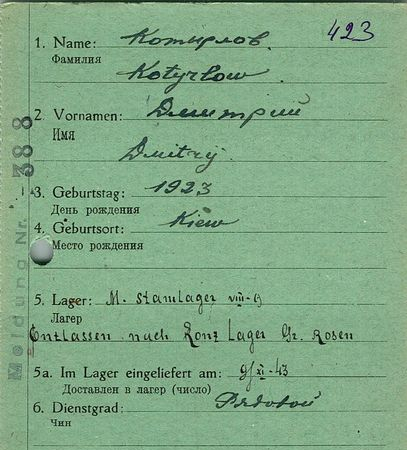 423
1. Name: Котырлов.
Фамилия
Kotyrlow
2. Vornamen: Дмитрий
Имя
Dmitrij
3. Geburtstag: 1923
День рождения
4. Geburtsort: Kiew
Место рождения
5. Lager: M. Stamlager VIII-
Лагер
Entlassen nach Konz Lager Gr. Rosen
5a. Im Lager eingeliefert am: 9/XI-43
Доставлен в лагер (число)
6. Dienstgrad: Рядовой
Чин
Meldung Nr. -38 8